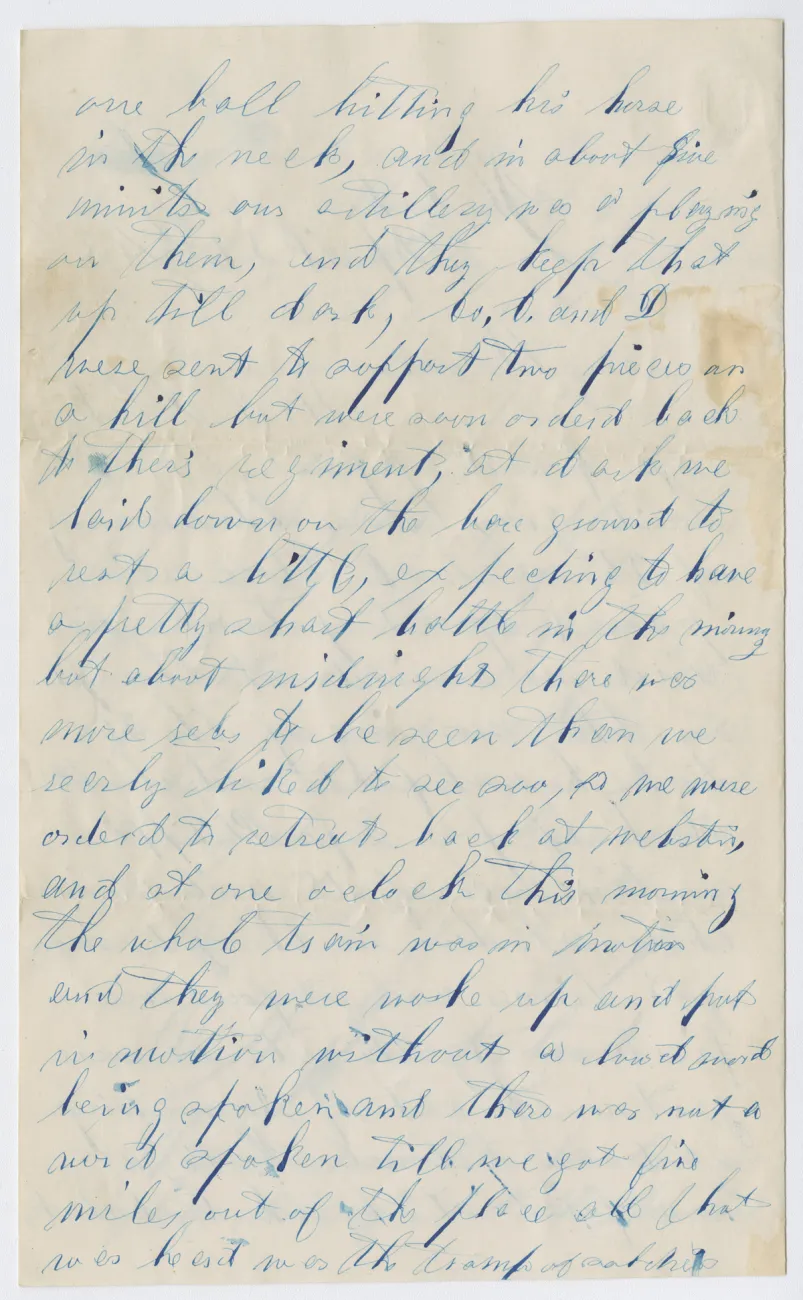 one ball hitting his horse
in the neck, and in about five
minits our artillery was a playing
on them, and they keep that
up till dark, Co, C. and D
were sent to support two pieces on
a hill but were soon orderd back
to theis regiment, at dark we
laid down on the bare ground to
rest a little, expecting to have
a pretty sharp battle in the morning
but about midnight there was
more sebs to be seen then we
seerly liked to see soo, so we were
orderd to retreat back at webster,
and at one oclock this morning
the whole train was in motion
and they were woke up and put
in motion without a loud word
being spoken and there was not a
word spoken till we got five
miles out of the place all that
was heard was the tramp of soldiers